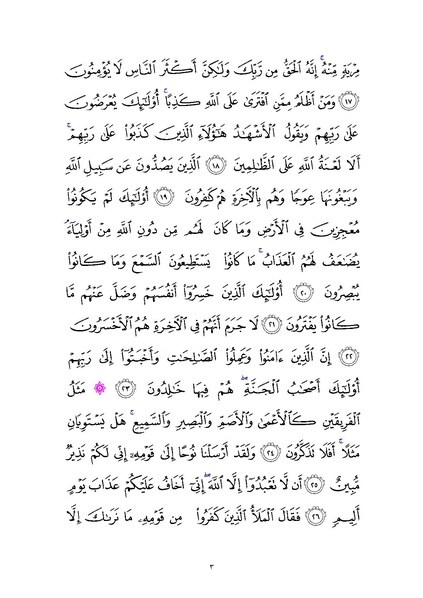 مِرْيَةٍ مِّنْهُ ۚ إِنَّهُ ٱلْحَقُّ مِن رَّبِّكَ وَلَـٰكِنَّ أَكْثَرَ ٱلنَّاسِ لَا يُؤْمِنُونَ
﴿١٧﴾ وَمَنْ أَظْلَمُ مِمَّنِ ٱفْتَرَىٰ عَلَى ٱللَّهِ كَذِبًا ۚ أُو۟لَـٰٓئِكَ يُعْرَضُونَ
عَلَىٰ رَبِّهِمْ وَيَقُولُ ٱلْأَشْهَـٰدُ هَـٰٓؤُلَآءِ ٱلَّذِينَ كَذَبُوا۟ عَلَىٰ رَبِّهِمْ ۚ
أَلَا لَعْنَةُ ٱللَّهِ عَلَى ٱلظَّـٰلِمِينَ ﴿١٨﴾ ٱلَّذِينَ يَصُدُّونَ عَن سَبِيلِ ٱللَّهِ
وَيَبْغُونَهَا عِوَجًا وَهُم بِٱلْـَٔاخِرَةِ هُمْ كَـٰفِرُونَ ﴿١٩﴾ أُو۟لَـٰٓئِكَ لَمْ يَكُونُوا۟
مُعْجِزِينَ فِى ٱلْأَرْضِ وَمَا كَانَ لَهُم مِّن دُونِ ٱللَّهِ مِنْ أَوْلِيَآءَ ۘ
يُضَـٰعَفُ لَهُمُ ٱلْعَذَابُ ۚ مَا كَانُوا۟ يَسْتَطِيعُونَ ٱلسَّمْعَ وَمَا كَانُوا۟
يُبْصِرُونَ ﴿٢٠﴾ أُو۟لَـٰٓئِكَ ٱلَّذِينَ خَسِرُوٓا۟ أَنفُسَهُمْ وَضَلَّ عَنْهُم مَّا
كَانُوا۟ يَفْتَرُونَ ﴿٢١﴾ لَا جَرَمَ أَنَّهُمْ فِى ٱلْـَٔاخِرَةِ هُمُ ٱلْأَخْسَرُونَ
﴿٢٢﴾ إِنَّ ٱلَّذِينَ ءَامَنُوا۟ وَعَمِلُوا۟ ٱلصَّـٰلِحَـٰتِ وَأَخْبَتُوٓا۟ إِلَىٰ رَبِّهِمْ
أُو۟لَـٰٓئِكَ أَصْحَـٰبُ ٱلْجَنَّةِ ۖ هُمْ فِيهَا خَـٰلِدُونَ ﴿٢٣﴾ ۞ مَثَلُ
ٱلْفَرِيقَيْنِ كَٱلْأَعْمَىٰ وَٱلْأَصَمِّ وَٱلْبَصِيرِ وَٱلسَّمِيعِ ۚ هَلْ يَسْتَوِيَانِ
مَثَلًا ۚ أَفَلَا تَذَكَّرُونَ ﴿٢٤﴾ وَلَقَدْ أَرْسَلْنَا نُوحًا إِلَىٰ قَوْمِهِۦٓ إِنِّى لَكُمْ نَذِيرٌ
مُّبِينٌ ﴿٢٥﴾ أَن لَّا تَعْبُدُوٓا۟ إِلَّا ٱللَّهَ ۖ إِنِّىٓ أَخَافُ عَلَيْكُمْ عَذَابَ يَوْمٍ
أَلِيمٍ ﴿٢٦﴾ فَقَالَ ٱلْمَلَأُ ٱلَّذِينَ كَفَرُوا۟ مِن قَوْمِهِۦ مَا نَرَىٰكَ إِلَّا
٣